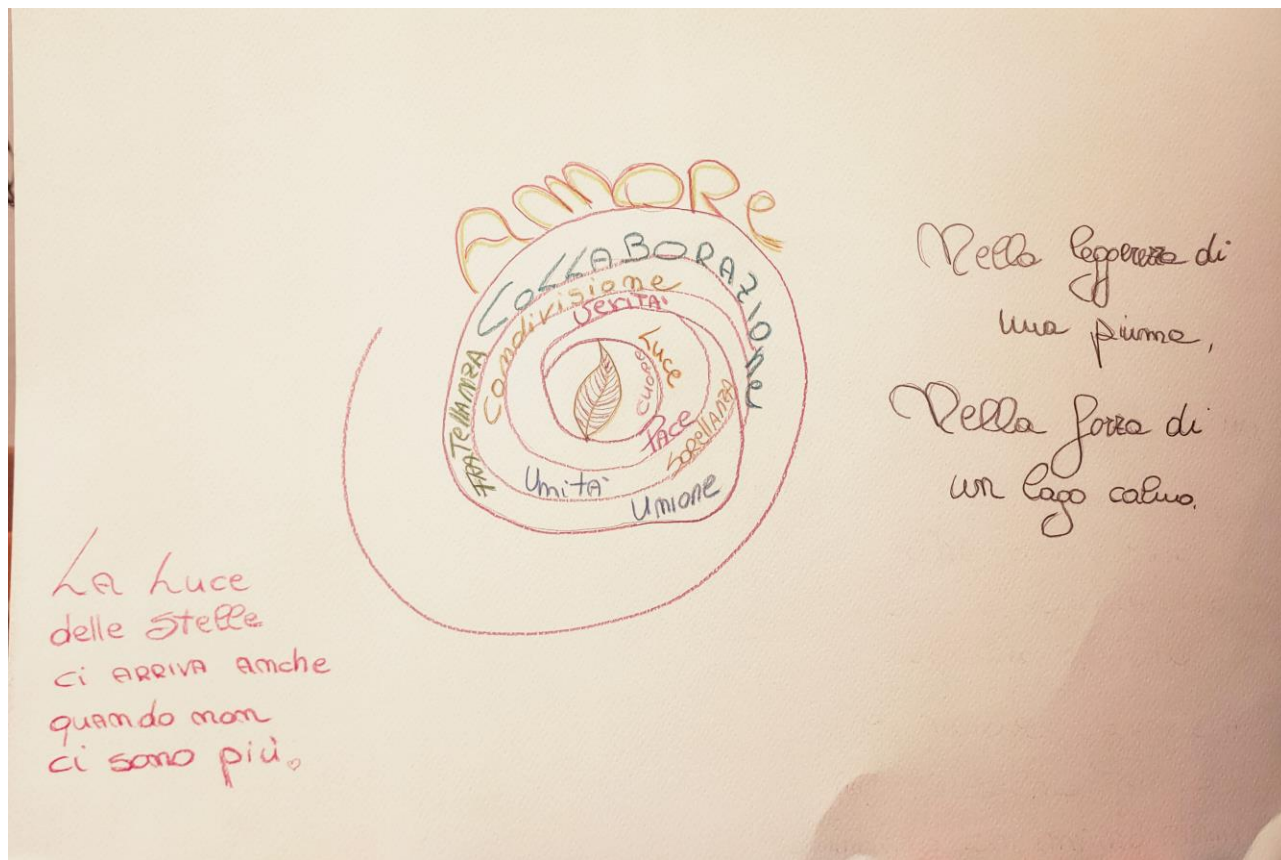 AMORE
COLLABORAZIONE
condivisione
VERITÀ
Luce
CUORE
PACE
SORELLANZA
FRATELLANZA
Unità
Unione
Nella leggerezza di
una piuma,
Nella forza di
un lago calmo.
LA Luce
delle Stelle
ci ARRIVA Anche
quando non
ci sono più.